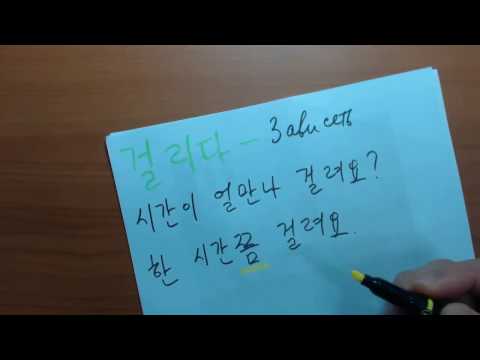 걸리다 - Зависеть
시간이 얼만나 걸려요?
한 시간쯤 걸려요.